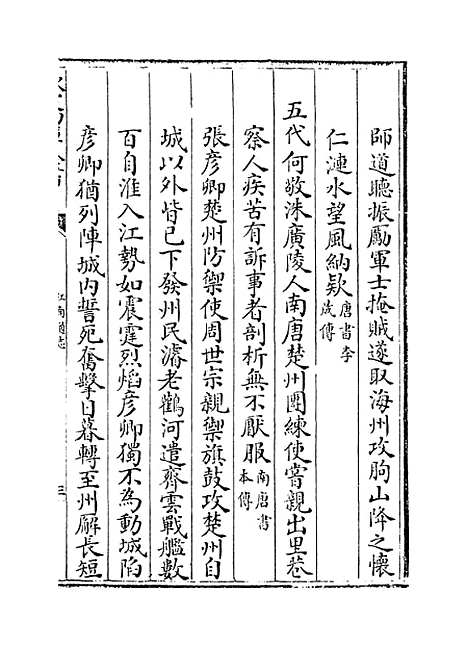 師道聽振勵軍士掩賊遂取海州攻朐山降之懷
仁漣水望風納欵唐書李
晟傳
五代何敬洙廣陵人南唐楚州團練使嘗親出里巷
察人疾苦有訴事者剖析無不厭服南唐書
本傳
張彦卿楚州防禦使周世宗親禦旗鼓攻楚州自
城以外皆已下發州民濬老鸛河遣齊雲戰艦數
百自淮入江勢如震霆烈焰彦卿獨不為動城陷
彦卿猶列陣城内誓死奮擊日暮轉至州廨長短
江南通志
三